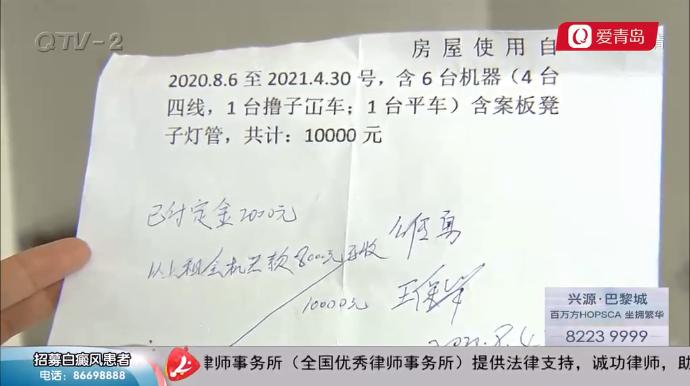 QTV-2
爱青岛
房屋使用自
2020.8.6 至 2021.4.30 号，含 6 台机器（4 台
四线，1 台撸子冚车；1 台平车）含案板凳
子灯管，共计：10000 元
已付定金2000元
以上租金机器款8000元
10000元
兴源·巴黎城
百万方HOPSCA 坐拥繁华
8223 9999
招募白癜风患者
电话：86698888
律师事务所（全国优秀律师事务所）提供法律支持，诚功律师，助